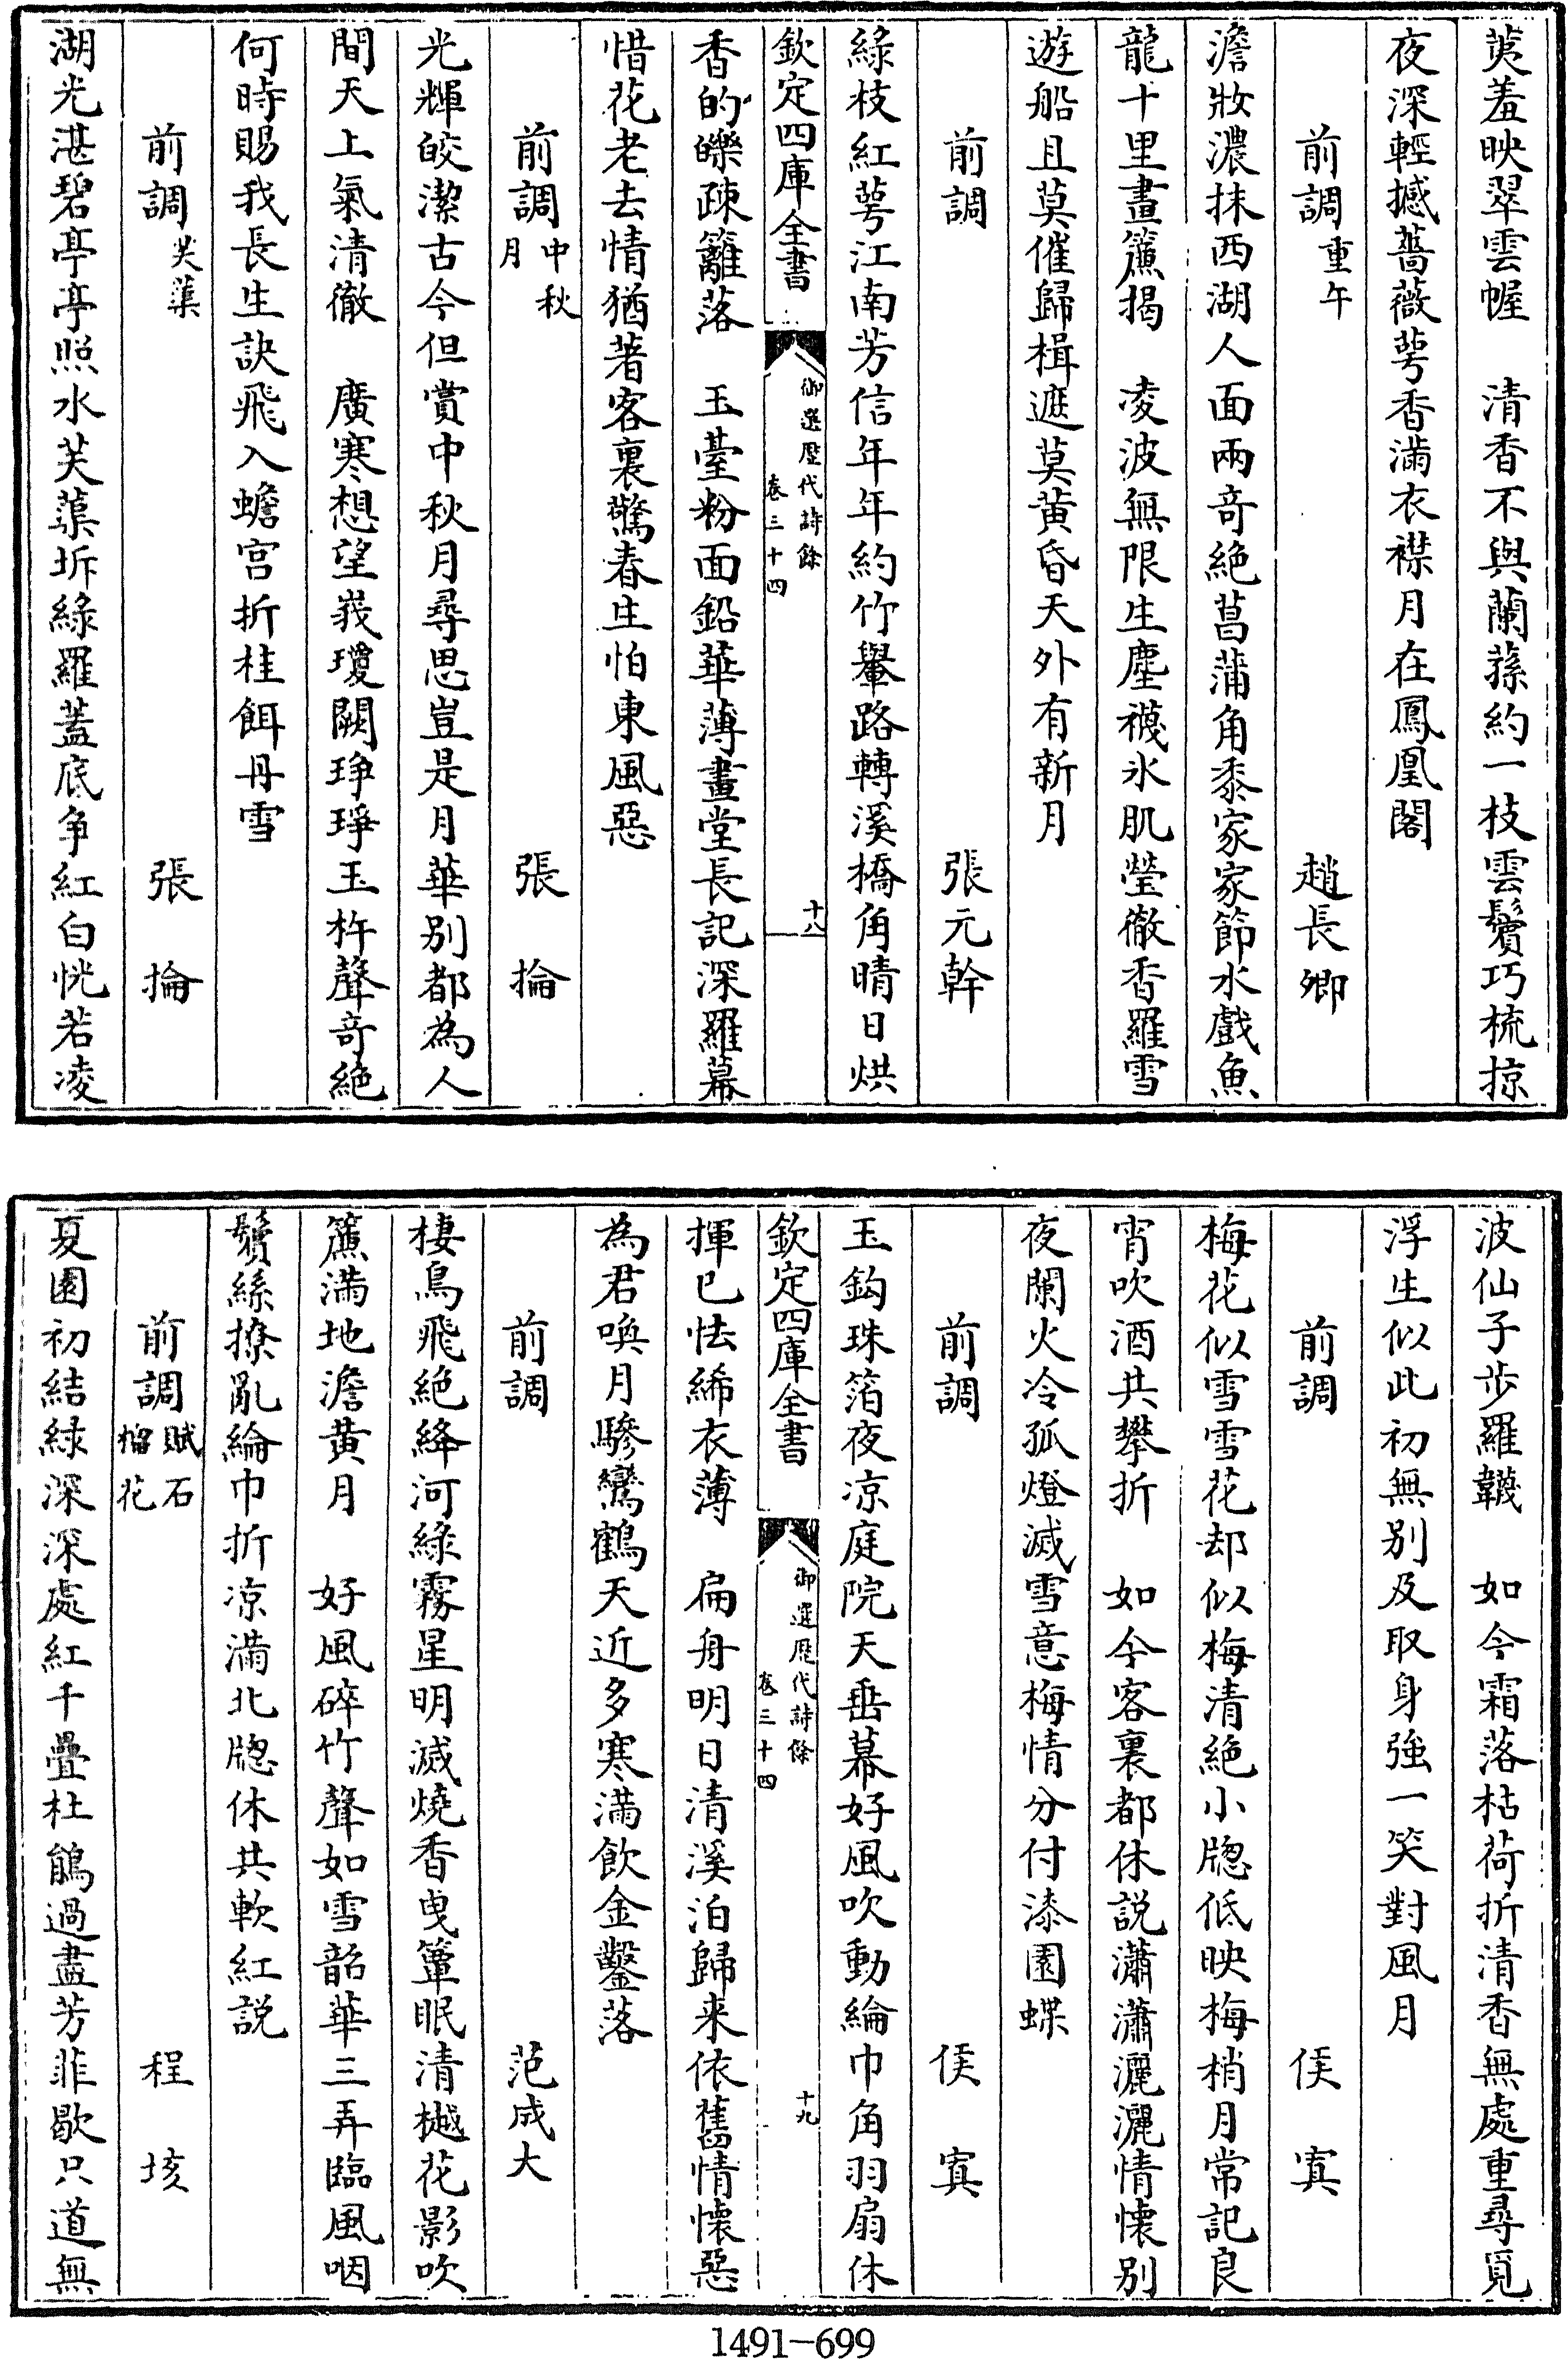 荑羞映翠雲幄　清香不與蘭蓀約一枝雲鬢巧梳掠
夜深輕撼薔薇萼香滿衣襟月在鳳凰閣
前調重午　趙長卿
澹妝濃抹西湖人面兩奇絶菖蒲角黍家家節水戲魚
龍十里畫簾揭　凌波無限生塵襪氷肌瑩徹香羅雪
遊船且莫催歸楫遮莫黄昏天外有新月
前調　張元幹
綠枝紅萼江南芳信年年約竹轝路轉溪橋角晴日烘
欽定四庫全書　御選歷代詩餘卷三十四　十八
香的皪疎籬落　玉臺粉面鉛華薄畫堂長記深羅幕
惜花老去情猶著客裏驚春生怕東風惡
前調中秋月　張掄
光輝皎潔古今但賞中秋月尋思豈是月華别都為人
間天上氣清徹　廣寒想望峩瓊闕琤琤玉杵聲奇絶
何時賜我長生訣飛入蟾宫折桂餌丹雪
前調芙蕖　張掄
湖光湛碧亭亭照水芙蕖坼綠羅蓋底争紅白恍若凌
波仙子步羅韈　如今霜落枯荷折清香無處重尋覓
浮生似此初無别及取身強一笑對風月
前調　侯寘
梅花似雪雪花却似梅清絶小牎低映梅梢月常記良
宵吹酒共攀折　如今客裏都休説瀟瀟灑灑情懷别
夜闌火冷孤燈滅雪意梅情分付漆園蝶
前調　侯寘
玉鈎珠箔夜凉庭院天垂幕好風吹動綸巾角羽扇休
欽定四庫全書　御選歷代詩餘卷三十四　十九
揮已怯絺衣薄　扁舟明日清溪泊歸来依舊情懷惡
為君喚月驂鸞鶴天近多寒滿飲金鑿落
前調　范成大
棲鳥飛絶絳河綠霧星明滅燒香曳簟眠清樾花影吹
簾滿地澹黄月　好風碎竹聲如雪韶華三弄臨風咽
鬢絲撩亂綸巾折凉滿北牎休共軟紅説
前調賦石榴花　程垓
夏園初結綠深深處紅千疊杜鵑過盡芳菲歇只道無
1491-699